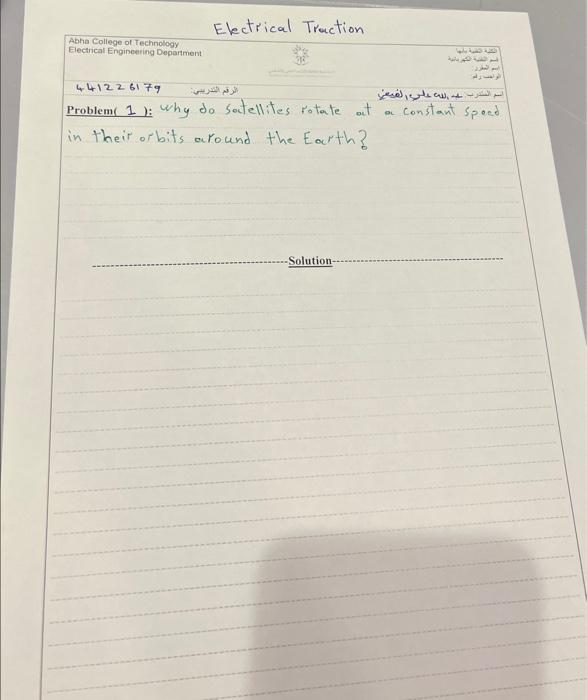 Electrical Traction
Abha College of Technology
Electrical Engineering Department
الكلية التقنية بأبها
قسم التقنية الكهربائية
اسم المقرر
الواجب رقم:
441226179 الرقم التدريبي:
اسم المتدرب:
Problem( 1 ): Why do satellites rotate at a constant speed
in their orbits around the Earth?
Solution